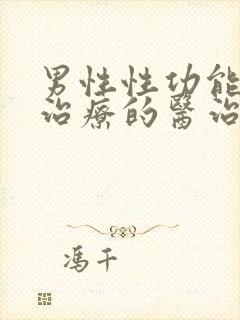 男性性功能
治療的醫治
馮千